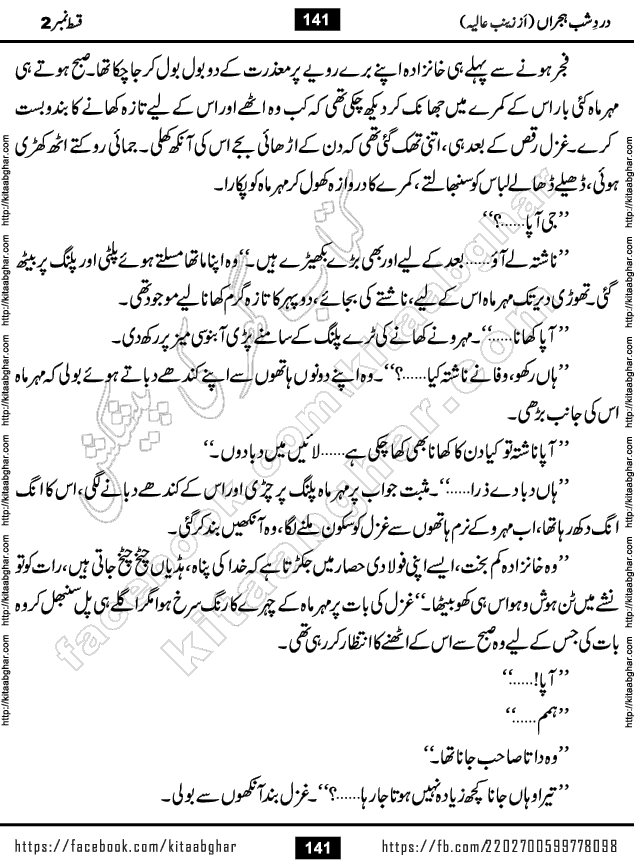 141
دردِ شب ہجراں (از زینب عالیہ)
قسط نمبر 2
فجر ہونے سے پہلے ہی خانزادہ اپنے برے رویے پر معذرت کے دو بول بول کر جا چکا تھا۔ صبح ہوتے ہی
مہرماہ کئی بار اس کے کمرے میں جھانک کر دیکھ چکی تھی کہ کب وہ اٹھے اور اس کے لیے تازہ کھانے کا بندوبست
کرے۔ غزل رقص کے بعد ہی، اتنی تھک گئی تھی کہ دن کے اڑھائی بجے اس کی آنکھ کھلی۔ جمائی روکتے اٹھ کھڑی
ہوئی، ڈھیلے ڈھالے لباس کو سنبھالتے، کمرے کا دروازہ کھول کر مہرماہ کو پکارا۔
’’جی آپا......؟‘‘
’’ناشتہ لے آؤ...... بعد کے لیے اور بھی بڑے بکھیڑے ہیں۔‘‘ وہ اپنا ماتھا مسلتے ہوئے پلٹی اور پلنگ پر بیٹھ
گئی۔ تھوڑی دیر تک مہرماہ اس کے لیے، ناشتے کی بجائے، دوپہر کا تازہ گرم کھانا لیے موجود تھی۔
’’آپا کھانا......‘‘۔ مہرو نے کھانے کی ٹرے پلنگ کے سامنے پڑی آبنوسی میز پر رکھ دی۔
’’ہاں رکھو، وفا نے ناشتہ کیا......؟‘‘۔ وہ اپنے دونوں ہاتھوں سے اپنے کندھے دباتے ہوئے بولی کہ مہرماہ
اس کی جانب بڑھی۔
’’آپا ناشتہ تو کیا دن کا کھانا بھی کھا چکی ہے...... لائیں میں دبا دوں۔‘‘
’’ہاں دبا دے ذرا......‘‘۔ مثبت جواب پر مہرماہ پلنگ پر چڑی اور اس کے کندھے دبانے لگی، اس کا انگ
انگ دکھ رہا تھا، اب مہرو کے نرم ہاتھوں سے غزل کو سکون ملنے لگا، وہ آنکھیں بند کر گئی۔
’’وہ خانزادہ کم بخت، ایسے اپنی فولادی حصار میں جکڑتا ہے کہ خدا کی پناہ، ہڈیاں چٹخ چٹخ جاتی ہیں، رات کو تو
نشے میں ٹن ہوش و ہواس ہی کھو بیٹھا۔‘‘ غزل کی بات پر مہرماہ کے چہرے کا رنگ سرخ ہوا مگر اگلے ہی پل سنبھل کر وہ
بات کی جس کے لیے وہ صبح سے اس کے اٹھنے کا انتظار کر رہی تھی۔
’’آپا!......‘‘
’’ہمم......‘‘
’’وہ داتا صاحب جانا تھا۔‘‘
’’تیرا وہاں جانا کچھ زیادہ نہیں ہوتا جا رہا......؟‘‘۔ غزل بند آنکھوں سے بولی۔
http://kitaabghar.com http://kitaabghar.com http://kitaabghar.com http://kitaabghar.com http://kitaabghar.com http://kitaabghar.com
http://kitaabghar.com http://kitaabghar.com http://kitaabghar.com http://kitaabghar.com http://kitaabghar.com http://kitaabghar.com
کتاب گھر کی پیشکش
facebook.com/kitaabghar
kitaabghar.com
https://facebook.com/kitaabghar
141
https://fb.com/2202700599778098